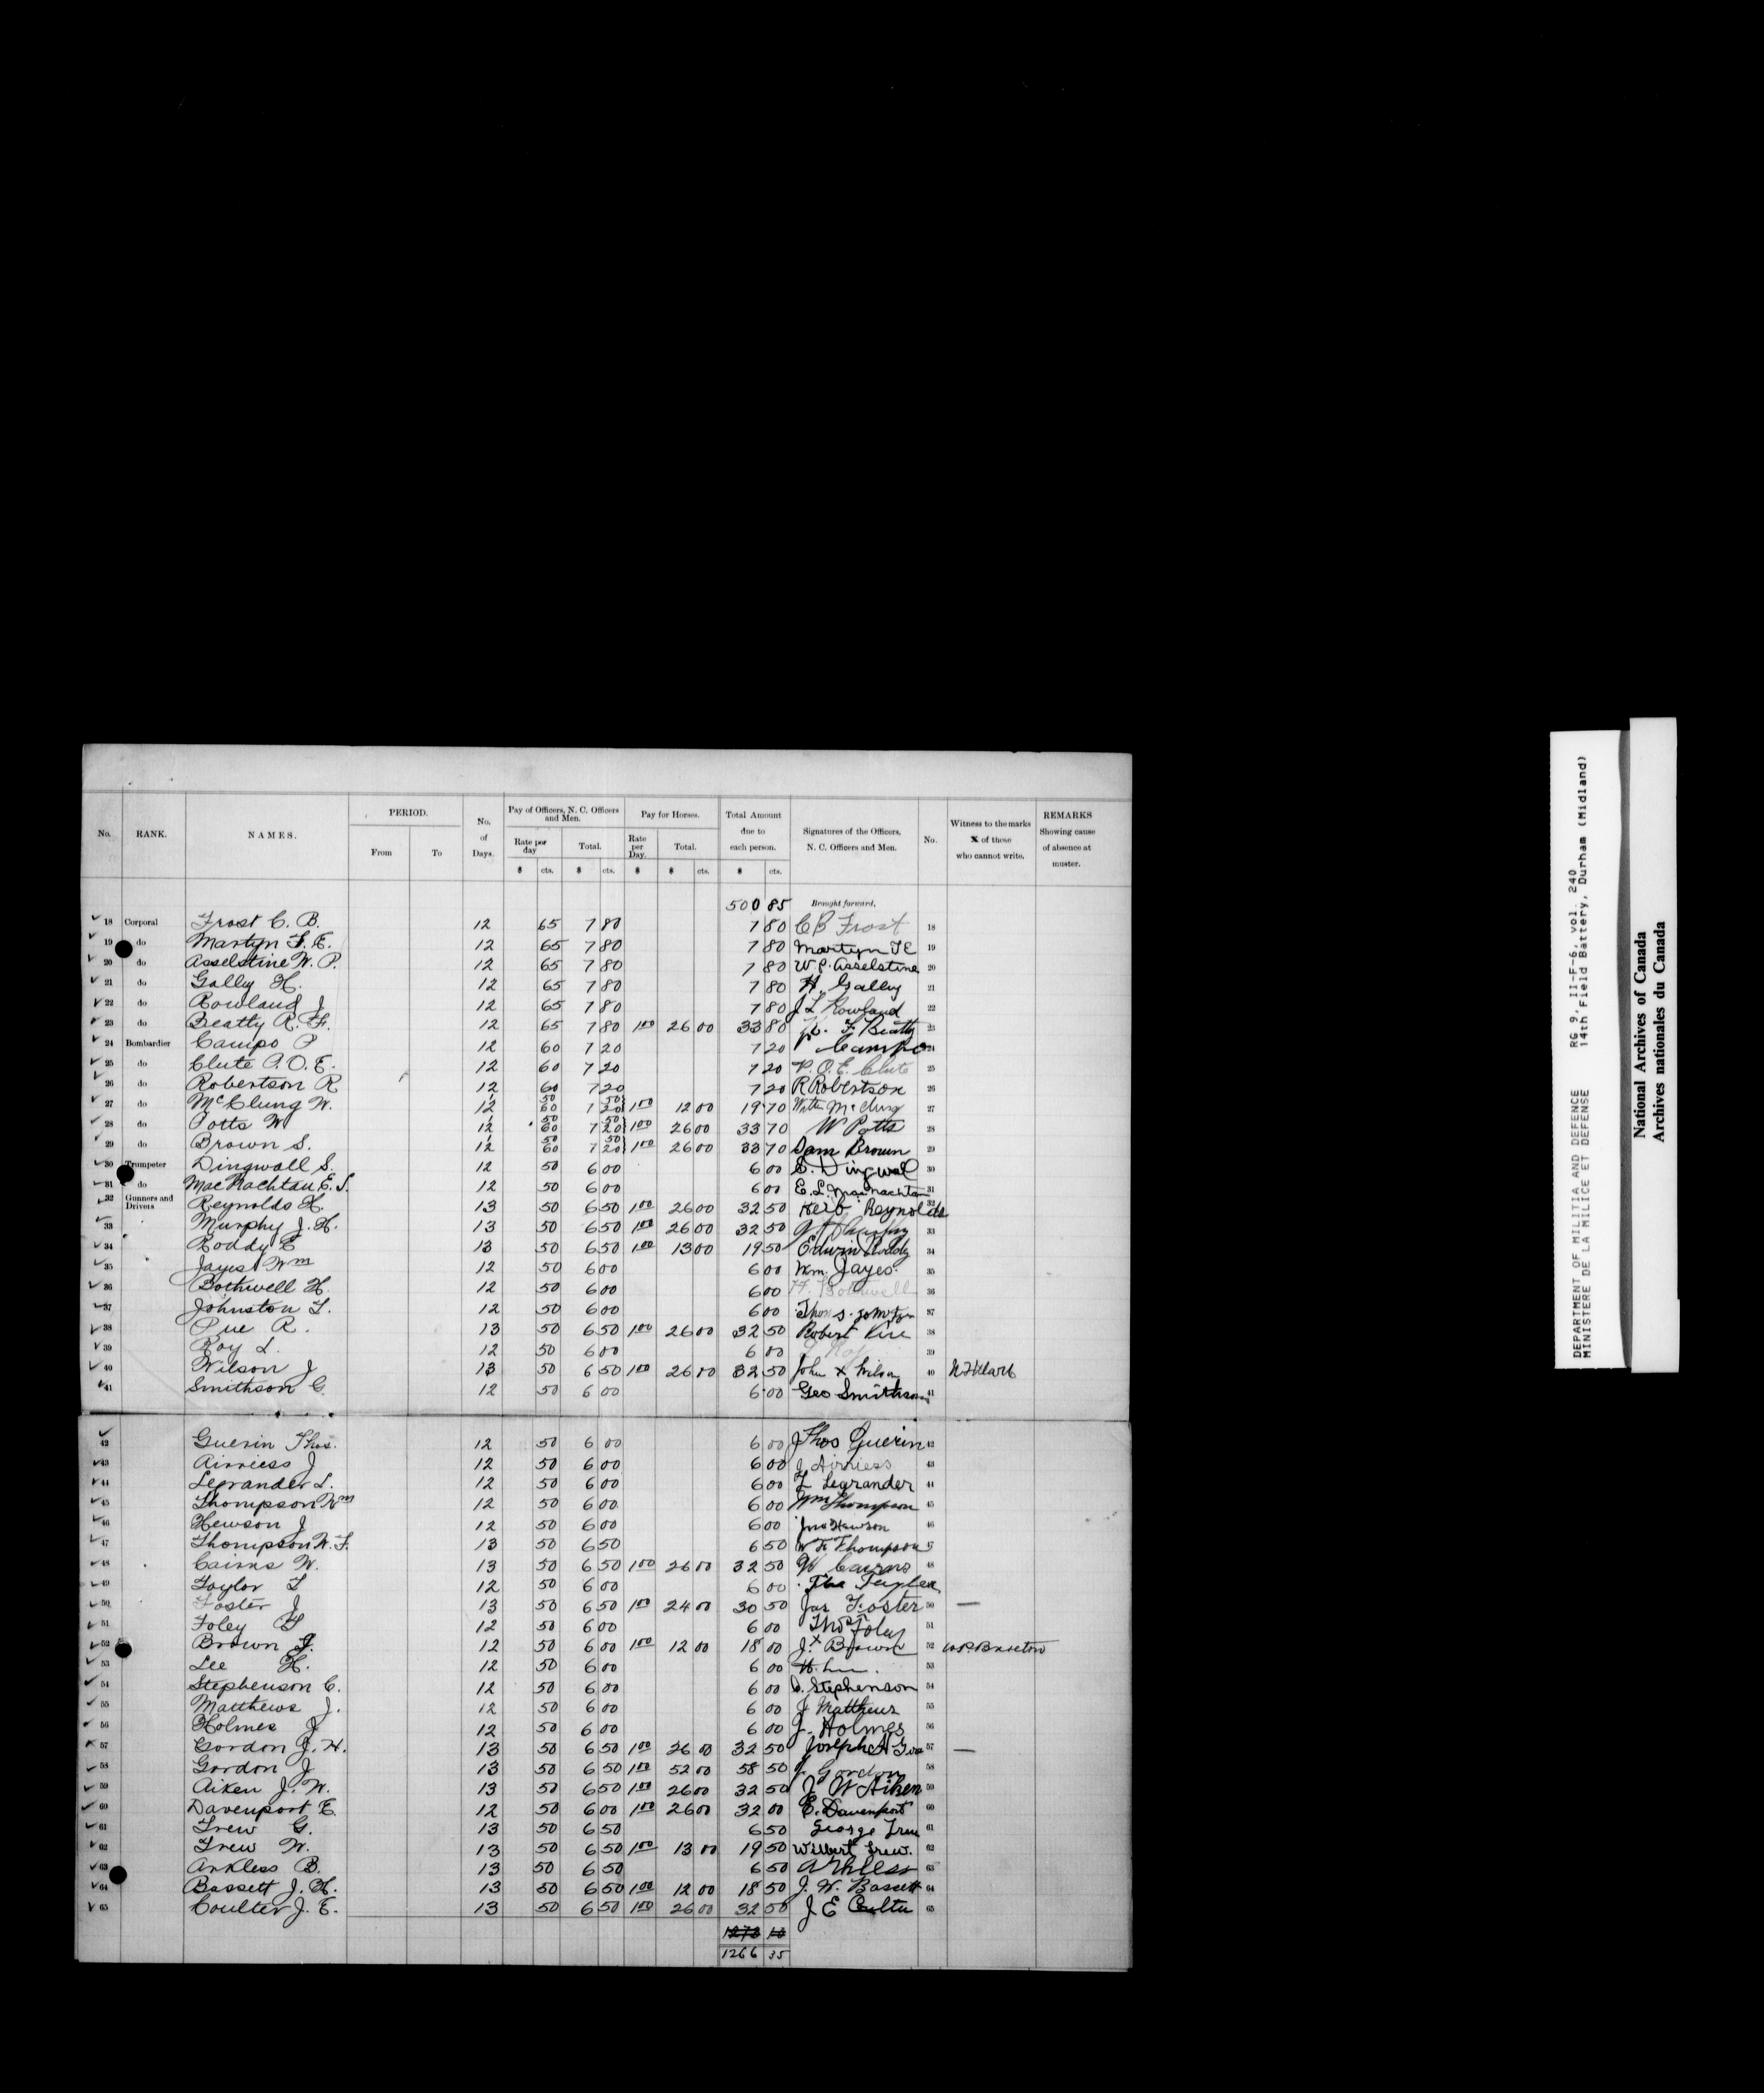 No. RANK. NAMES. PERIOD. From To No. of Days. Pay of Officers, N. C. Officers and Men. Rate per day $ cts. Total. $ cts. Pay for Horses. Rate per Day. $ Total. $ cts. Total Amount due to each person. $ cts. Signatures of the Officers, N. C. Officers and Men. No. Witness to the marks X of those who cannot write. REMARKS Showing cause of absence at muster.
500 85 Brought forward,
18 Corporal Frost C. B. 12 65 7 80 7 80 C B Frost 18
19 do Martyn F. E. 12 65 7 80 7 80 Martyn F E 19
20 do Asselstine W. P. 12 65 7 80 7 80 W P. Asselstine 20
21 do Gally H. 12 65 7 80 7 80 H. Gally 21
22 do Rowland J 12 65 7 80 7 80 J L Rowland 22
23 do Beatty R. F. 12 65 7 80 1 00 26 00 33 80 F Beatty 23
24 Bombardier Campo P 12 60 7 20 7 20 P Campo
25 do Clute P. O. E. 12 60 7 20 7 20 P. O. E. Clute 25
26 do Robertson R 12 60 7 20 7 20 R Robertson 26
27 do McClung W. 1 12 50 60 50 7 20 1 00 12 00 19 70 McClung 27
28 do Potts W 1 12 50 60 50 7 20 1 00 26 00 33 70 W Potts 28
29 do Brown S. 1 12 50 60 50 7 20 1 00 26 00 33 70 Sam Brown 29
30 Trumpeter Dingwall S. 12 50 6 00 6 00 S. Dingwal 30
31 do MacNachtan E. S. 12 50 6 00 6 00 E. L. MacNachtan 31
32 Gunners and Drivers Reynolds H. 13 50 6 50 1 00 26 00 32 50 Herb Reynolds 32
33 Murphy J. H. 13 50 6 50 1 00 26 00 32 50 J H Murphy 33
34 Roddy E 13 50 6 50 1 00 13 00 19 50 Edwin Roddy 34
35 Jayes Wm 12 50 6 00 6 00 Wm. Jayes. 35
36 Bothwell H. 12 50 6 00 6 00 H. Bothwell 36
37 Johnston T. 12 50 6 00 6 00 Thos S. Johnston 37
38 Pue R. 13 50 6 50 1 00 26 00 32 50 Robert Pue 38
39 Roy L. 12 50 6 00 6 00 Roy 39
40 Wilson J 13 50 6 50 1 00 26 00 32 50 John X Wilson 40
41 Smithson G. 12 50 6 00 6 00 Geo Smithson 41
42 Guerin Thos. 12 50 6 00 6 00 Thos Guerin 42
43 Airniess J 12 50 6 00 6 00 J Airniess 43
44 Legrander L. 12 50 6 00 6 00 L Legrander 44
45 Thompson Wm 12 50 6 00 6 00 Wm Thompson 45
46 Hewson J 12 50 6 00 6 00 Jno Hewson 46
47 Thompson W. F. 13 50 6 50 6 50 W F Thompson 47
48 Cairns W. 13 50 6 50 1 00 26 00 32 50 W Cairns 48
49 Taylor T 12 50 6 00 6 00 49
50 Foster J 13 50 6 50 1 00 24 00 30 50 Jas Foster 50 —
51 Foley T 12 50 6 00 6 00 Thos Foley 51
52 Brown J. 12 50 6 00 1 00 12 00 18 00 J. X Brown 52
53 Lee H. 12 50 6 00 6 00 H. Lee. 53
54 Stephenson C. 12 50 6 00 6 00 C. Stephenson 54
55 Matthews J. 12 50 6 00 6 00 J Matthews 55
56 Holmes J 12 50 6 00 6 00 J. Holmes 56
57 Gordon J. H. 13 50 6 50 1 00 26 00 32 50 Joseph H 57 —
58 Gordon J 13 50 6 50 1 00 52 00 58 50 J. Gordon 58
59 Aiken J. W. 13 50 6 50 1 00 26 00 32 50 J W Aiken 59
60 Davenport E. 12 50 6 00 1 00 26 00 32 00 E. Davenport 60
61 Trew G. 13 50 6 50 6 50 George Trew 61
62 Trew W. 13 50 6 50 1 00 13 00 19 50 Wilbert Trew. 62
63 Arkless B. 13 50 6 50 6 50 Arkless 63
64 Bassett J. H. 13 50 6 50 1 00 12 00 18 50 J. W. Bassett 64
65 Coulter J. E. 13 50 6 50 1 00 26 00 32 50 J E Coulter 65
1273 10
1266 35
DEPARTMENT OF MILITIA AND DEFENCE RG 9, II-F-6, vol. 240
MINISTERE DE LA MILICE ET DEFENSE 14th Field Battery, Durham (Midland)
National Archives of Canada
Archives nationales du Canada